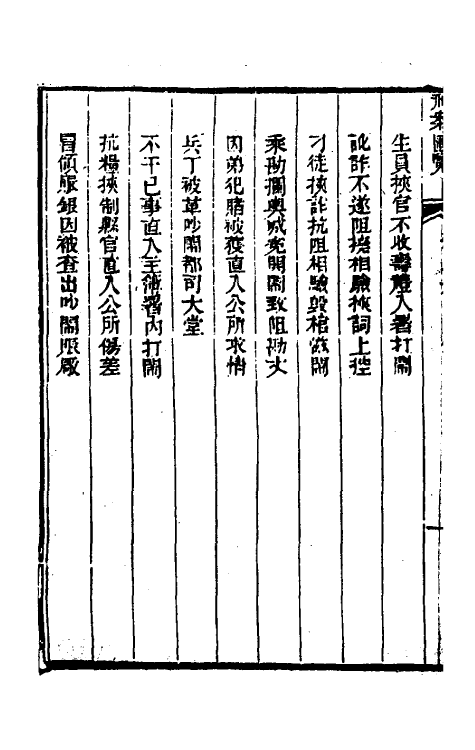 生員挾官不收壽禮入署打鬧
訛詐不遂阻撓相驗挾詞上控
刁徒挾詐抗阻相驗毀棺滋鬧
乘勘攔輿減免開鬧致阻勘丈
因弟犯賭被獲直入公所求情
兵丁被革吵鬧都司大堂
不干己事直入主簿署內打鬧
抗糧挾制縣官直入公所傷差
冒領賑銀因被查出吵鬧賑廠